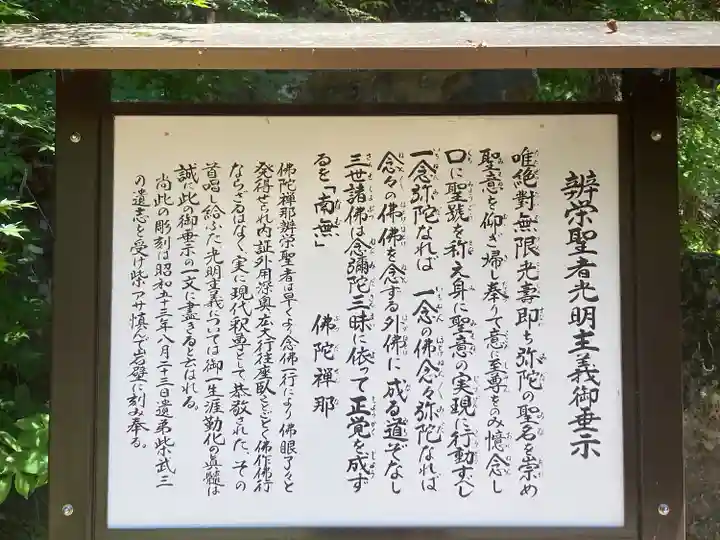 辨栄聖者光明主義御垂示
唯絶對無限光壽即ち弥陀の聖名を崇め
聖意を仰ぎ帰し奉りて意に至尊をのみ憶念し
口に聖號を称え身に聖意の実現に行動すべし
一念弥陀なれば 一念の佛念々弥陀なれば
念々の佛佛を念ずる外佛に成る道ぞなし
三世諸佛は念彌陀三昧に依って正覚を成ず
るを「南無」 佛陀禅那
佛陀禅那辨栄聖者は早くより念佛一行により佛眼了々と
発得せられ内証外用深奥在文行住座臥ことごとく佛作佛行
ならざるはなく、実に現代釈尊として恭敬された、その
首唱し給ふた光明主義については御一生涯勤化の眞髄は
誠に此の御垂示の一文に盡きると云はれる。
尚此の彫刻は昭和五十三年八月二十三日遺弟柴武三
の遺志を受け柴アサ慎んで岩壁に刻み奉る。